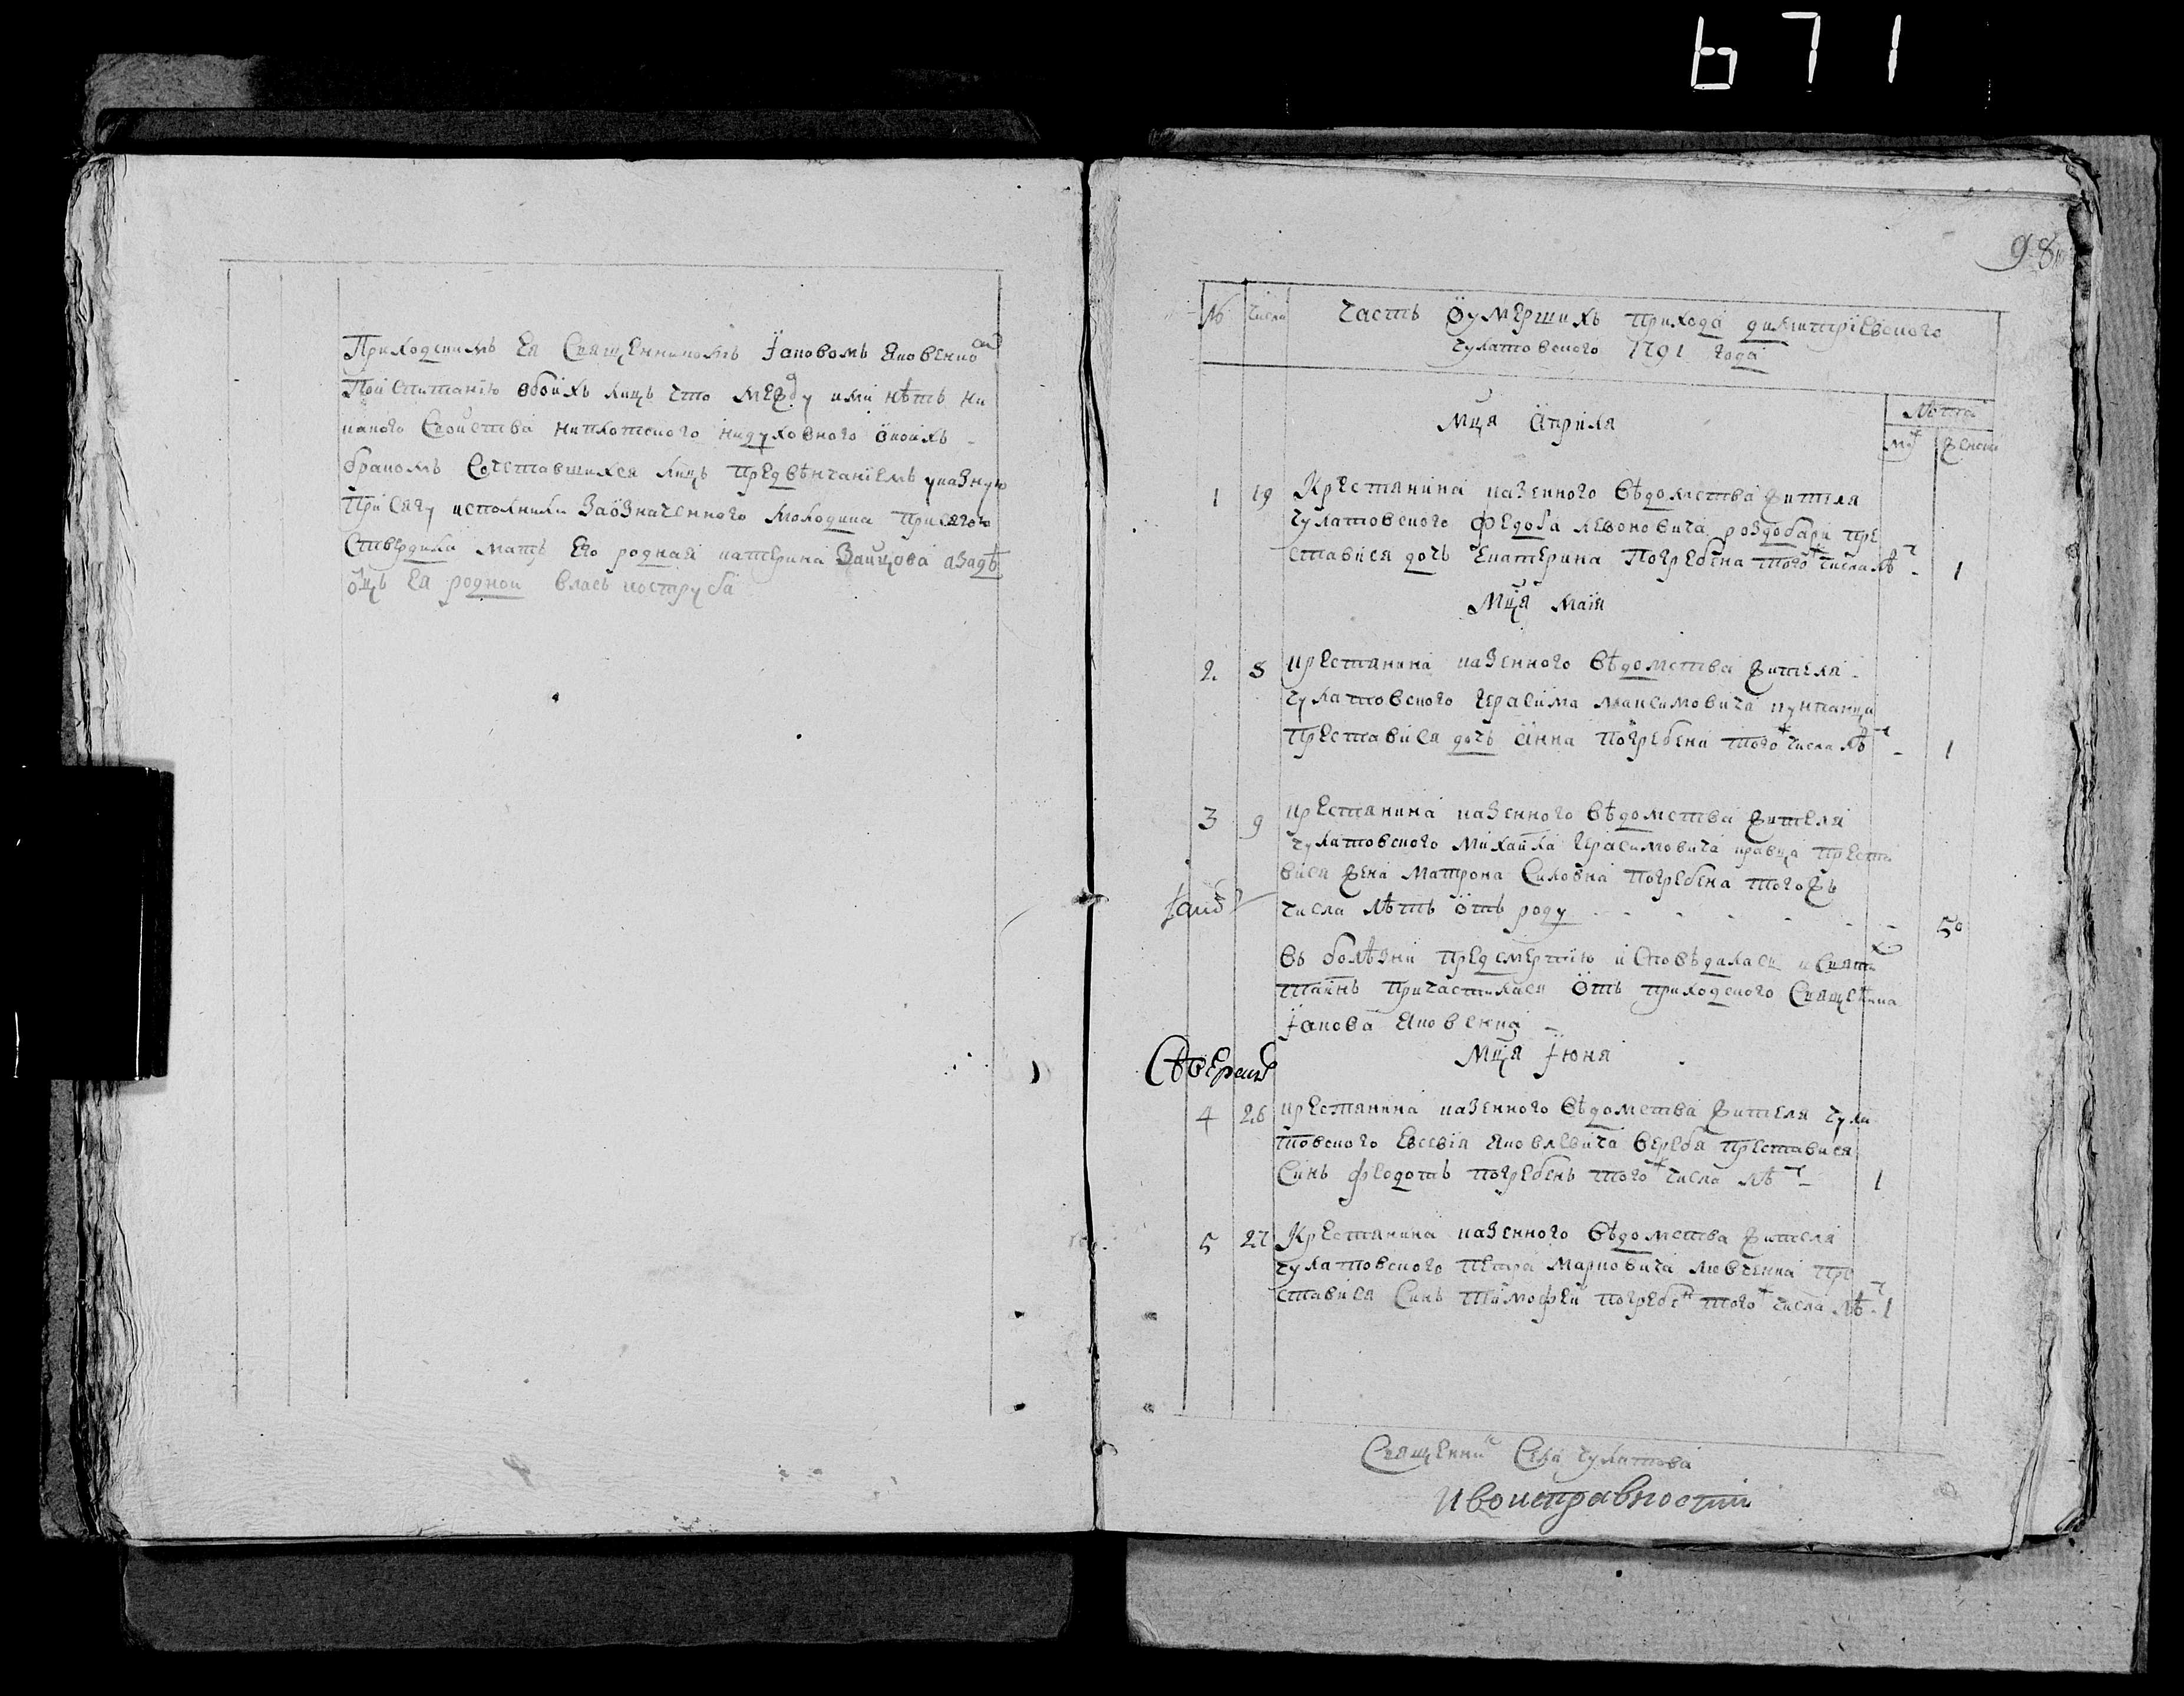 671
Приходскимъ Ея Священникомъ Іаковомъ Яковенко
По испитанію обоихъ лицъ что между ими нѣтъ ни
какого Свойства ниплотского нидуховного о коихъ
бракомъ Сочетавшихся лицъ предвѣнчаніемъ указную
присягу исполнили Заозначенного молодика присягою
Ствердила мать Его родная катерина Зайцова азадѣ
оцъ Ея родной власъ кострубa
98
№ Числа Часть о умершихъ прихода димитріевского
чулатовского 1791 года
Лѣта
Мца Априля
муж женск
1 19 Крестянина казенного вѣдомства жителя
чулатовского Федора левоновича роздобари пре
ставися дочь Екатерина Погребена того ж числа лѣт 1
Мца Маія
2. 8 крестянина казенного вѣдомства жителя
чулатовского Герасима максимовича кунтанца
преставися дочь Анна погребена того ж числа лѣт 1
3 9 крестянина казенного вѣдомства жителя
чулатовского Михайла Герасимовича кравца преста
вися жена Матрона Силовна погребена тогожъ
числа лѣтъ отъ роду 50
въ болѣзни предсмертію исповѣдалася и Святи
таинъ причастилася Отъ приходского Священника
Іакова Яковенка
Мца Іюня
4 26 крестянина казенного вѣдомства жителя чула
товского Евсевія Яковлевича вереба преставися
Синъ федотъ погребенъ того ж числа лѣт 1
5 27 Крестянина казенного вѣдомства жителя
чулатовского Петра Марковича левченка пре
ставися Синъ Тимофей погребен того ж числа лѣт 1
Священник Села чулатова